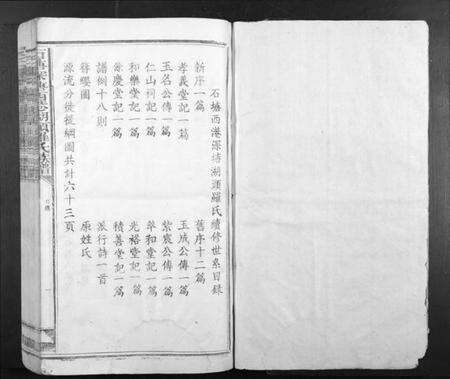 石塘西港深塘湖頭羅氏續修世系目錄
新序一篇 舊序十二篇
孝義堂記一篇 玉成公傳一篇
玉名公傳一篇 紫宸公傳一篇
仁山祠記一篇 萃和堂記一篇
和樂堂記一篇 光裕堂記一篇
餘慶堂記一篇 積善堂記一篇
譜例十八則 派行詩一首
原姓氏
源流分徙提綱圖共計六十三頁